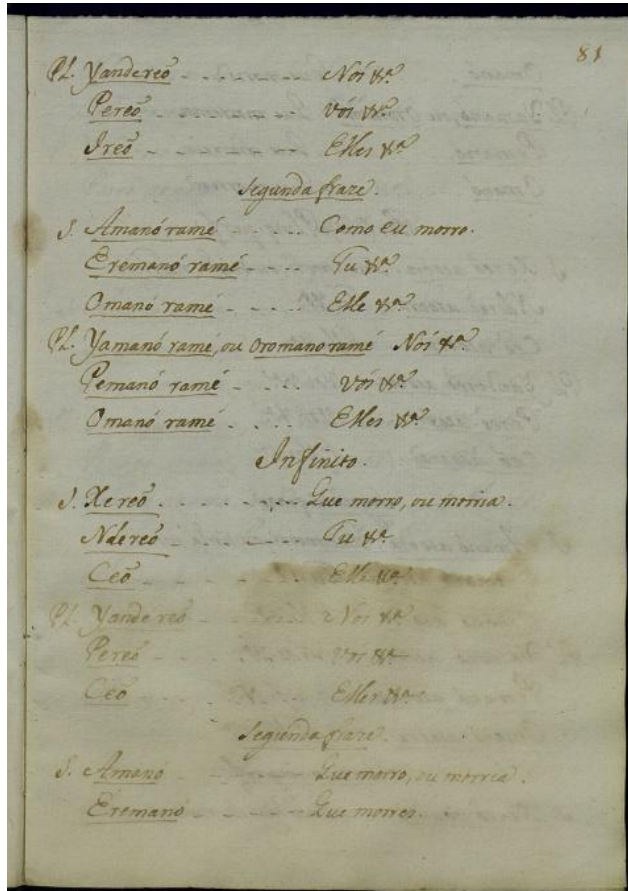 81
Pl. Yandereõ Nós &ª
Pereõ vós &ª
Ireõ Elles &ª
Segunda fraze.
S. Amanó ramé - - - Como eu morro.
Eremanó ramé - - - Tu &ª
Omanó ramé - - - - Elle &ª
Pl. Yamanó ramé, ou oromanoramé Nós &ª
Pemanó ramé - - - - vós &ª
Omanó ramé - - - - Elles &ª
Infinito.
S. Xereõ - - - - - Que morro, ou morria.
Ndereõ - - - - - Tu &ª
Ceõ - - - - - Elle &ª
Pl. Yandereõ - - - - Nós &ª
Pereõ - - - - vós &ª
Ceõ - - - - Elles &ª
Segunda fraze.
S. Amanó - - - - Que morro, ou morria.
Eremanó - - - - Que morres.